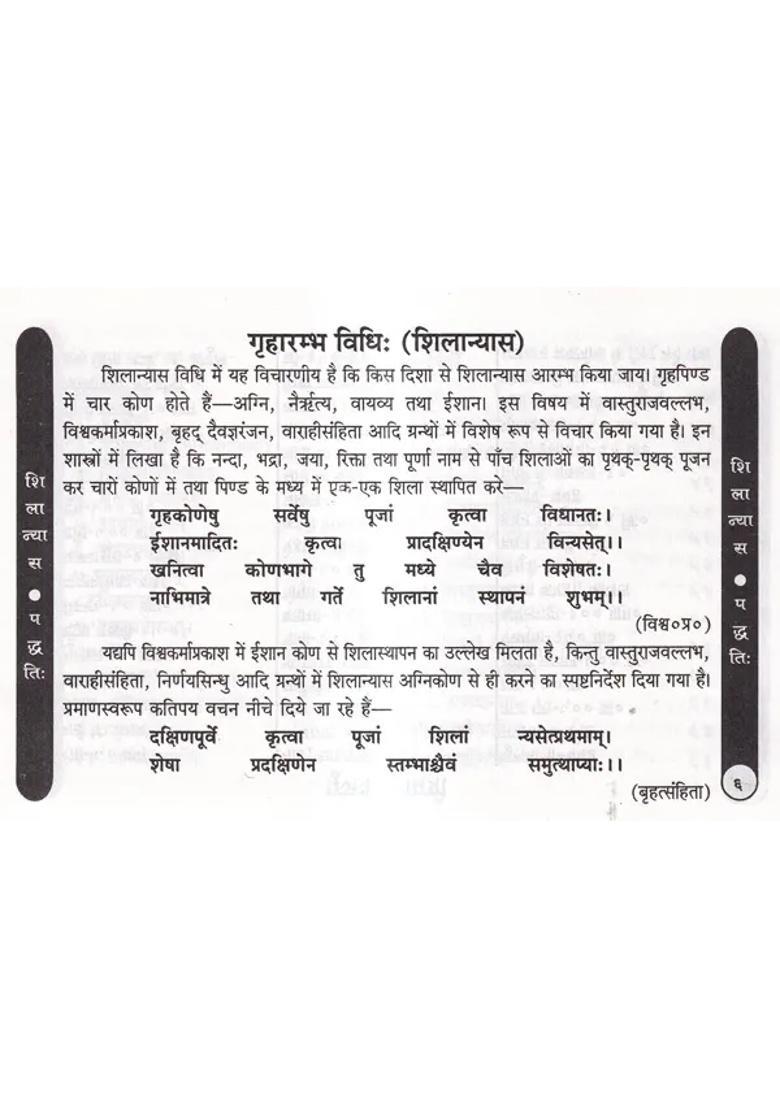 गृहारम्भ विधिः (शिलान्यास)
शिलान्यास विधि में यह विचारणीय है कि किस दिशा से शिलान्यास आरम्भ किया जाय। गृहपिण्ड
में चार कोण होते हैं—अग्नि, नैर्ऋत्य, वायव्य तथा ईशान। इस विषय में वास्तुराजवल्लभ,
विश्वकर्माप्रकाश, बृहद् दैवज्ञरंजन, वाराहीसंहिता आदि ग्रन्थों में विशेष रूप से विचार किया गया है। इन
शास्त्रों में लिखा है कि नन्दा, भद्रा, जया, रिक्ता तथा पूर्णा नाम से पाँच शिलाओं का पृथक्-पृथक् पूजन
कर चारों कोणों में तथा पिण्ड के मध्य में एक-एक शिला स्थापित करे—
गृहकोणेषु सर्वेषु पूजां कृत्वा विधानतः।
ईशानमादितः कृत्वा प्रादक्षिण्येन विन्यसेत्।।
खनित्वा कोणभागे तु मध्ये चैव विशेषतः।
नाभिमात्रे तथा गर्ते शिलानां स्थापनं शुभम्।।
(विश्व०प्र०)
यद्यपि विश्वकर्माप्रकाश में ईशान कोण से शिलास्थापन का उल्लेख मिलता है, किन्तु वास्तुराजवल्लभ,
वाराहीसंहिता, निर्णयसिन्धु आदि ग्रन्थों में शिलान्यास अग्निकोण से ही करने का स्पष्टनिर्देश दिया गया है।
प्रमाणस्वरूप कतिपय वचन नीचे दिये जा रहे हैं—
दक्षिणपूर्वे कृत्वा पूजां शिलां न्यसेत्प्रथमाम्।
शेषा प्रदक्षिणेन स्तम्भाश्चैवं समुत्थाप्याः।।
(बृहत्संहिता)
शि
ला
न्या
स
●
प
द्ध
तिः
शि
ला
न्या
स
●
प
द्ध
तिः
६